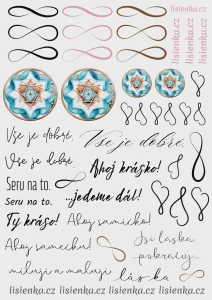 lisienka.cz lisienka.cz lisienka.cz
Vše je dobré.
Vše je dobré.
Vše je dobré
Ahoj krásko!
Seru na to.
...jedeme dál!
Seru na to.
Ty kráso!
Ahoj samičko!
Ahoj samečku!
Jsi láska,
...pokračuj...
miluji a maluji
láska
lisienka.cz lisienka.cz lisienka.cz